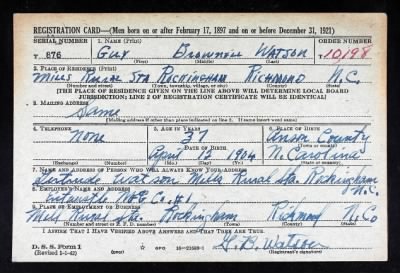 REGISTRATION CARD—(Men born on or after February 17, 1897 and on or before December 31, 1921)
SERIAL NUMBER 1. NAME (Print) ORDER NUMBER
T 876 Guy Brownell Watson T10,198
(First) (Middle) (Last)
2. PLACE OF RESIDENCE (Print)
Mills Rural Sta Rockingham Richmond N.C.
(Number and street) (Town, township, village, or city) (County) (State)
[THE PLACE OF RESIDENCE GIVEN ON THE LINE ABOVE WILL DETERMINE LOCAL BOARD
JURISDICTION; LINE 2 OF REGISTRATION CERTIFICATE WILL BE IDENTICAL]
3. MAILING ADDRESS
Same
(Mailing address if other than place indicated on line 2. If same insert word same)
4. TELEPHONE 5. AGE IN YEARS 6. PLACE OF BIRTH
None 37 Anson County
DATE OF BIRTH (Town or county)
April 1904 N. Carolina
(Exchange) (Number) (Mo.) (Day) (Yr.) (State or country)
7. NAME AND ADDRESS OF PERSON WHO WILL ALWAYS KNOW YOUR ADDRESS
Gertrude Watson Mills Rural Sta. Rockingham
N.C.
8. EMPLOYER'S NAME AND ADDRESS
Entwistle Mfg Co. #1
9. PLACE OF EMPLOYMENT OR BUSINESS
Mill Rural Sta. Rockingham Richmond N.C.
(Number and street or R. F. D. number) (Town) (County) (State)
I AFFIRM THAT I HAVE VERIFIED ABOVE ANSWERS AND THAT THEY ARE TRUE.
D. S. S. Form 1
(Revised 1-1-42) GPO 16—21630-1 G. B. Watson
(Registrant's signature)